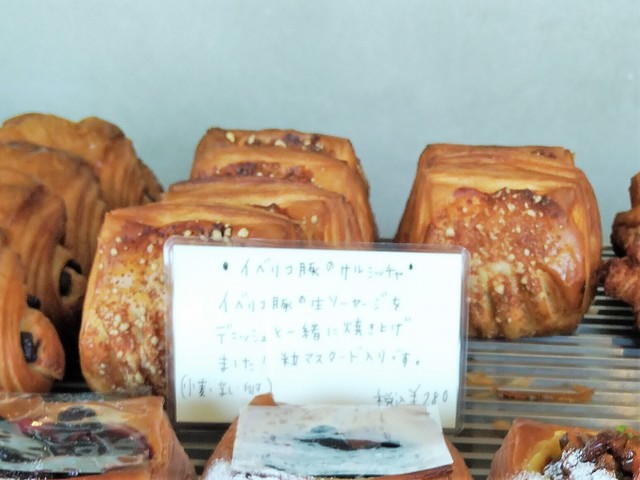 • イベリコ豚のサルシッチャ •
イベリコ豚の生ソーセージを
デニッシュと一緒に焼き上げ
ました！ 粒マスタード入りです。
(小麦・乳・卵)
税込¥280